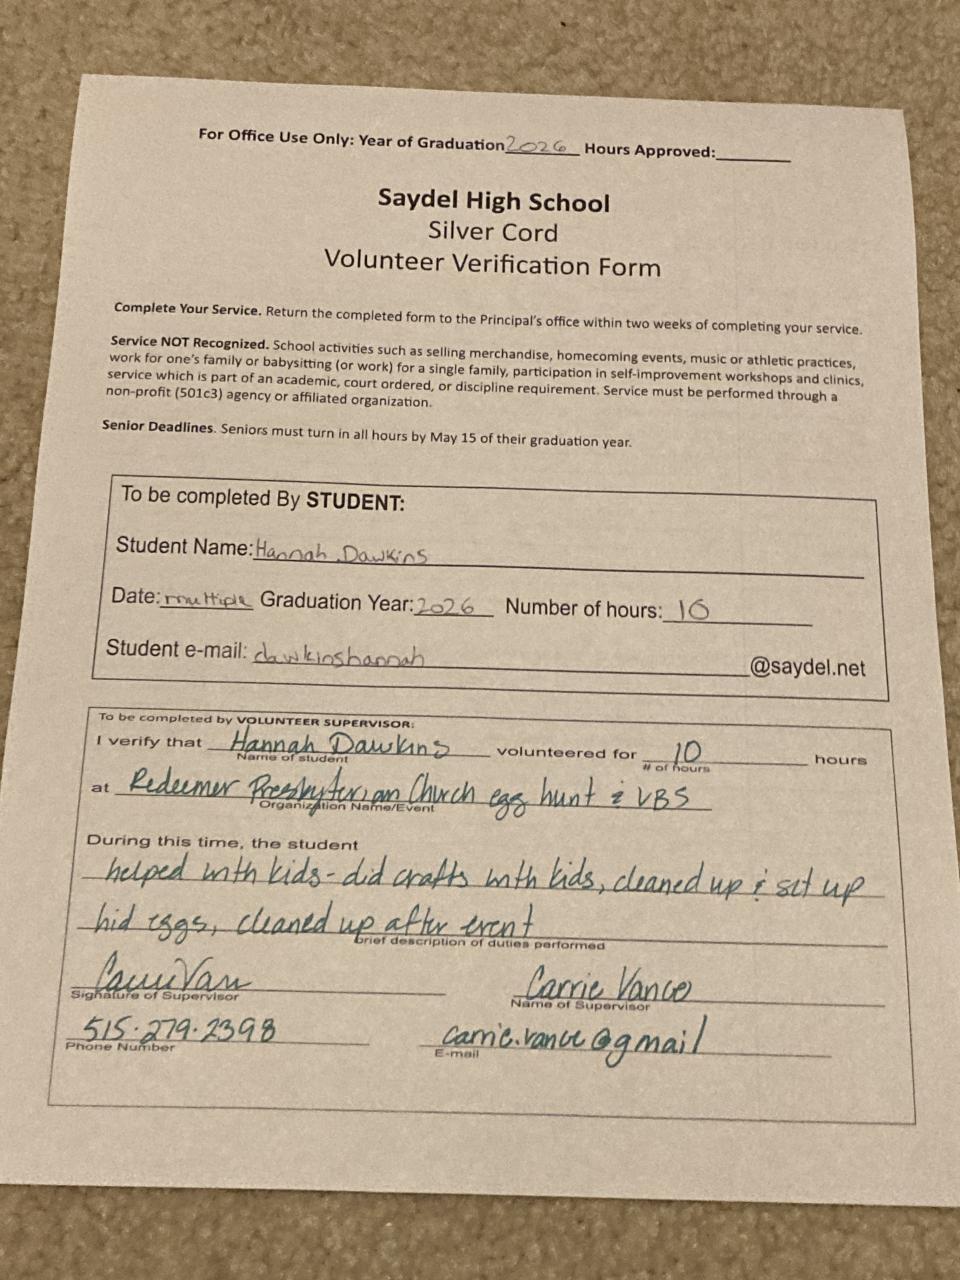 For Office Use Only: Year of Graduation 2026 Hours Approved:
Saydel High School
Silver Cord
Volunteer Verification Form
Complete Your Service. Return the completed form to the Principal's office within two weeks of completing your service.
Service NOT Recognized. School activities such as selling merchandise, homecoming events, music or athletic practices,
work for one's family or babysitting (or work) for a single family, participation in self-improvement workshops and clinics,
service which is part of an academic, court ordered, or discipline requirement. Service must be performed through a
non-profit (501c3) agency or affiliated organization.
Senior Deadlines. Seniors must turn in all hours by May 15 of their graduation year.
To be completed By STUDENT:
Student Name: Hannah Dawkins
Date: multiple Graduation Year: 2026 Number of hours: 10
Student e-mail: dawkinshannah @saydel.net
To be completed by VOLUNTEER SUPERVISOR:
I verify that Hannah Dawkins volunteered for 10 hours
Name of student # of hours
at Redeemer Presbyterian Church egg hunt & VBS
Organization Name/Event
During this time, the student
helped with kids - did crafts with kids, cleaned up & set up
hid eggs, cleaned up after event
brief description of duties performed
Carrie Vance
Signature of Supervisor Name of Supervisor
515.279.2398 carrie.vance@gmail
Phone Number E-mail